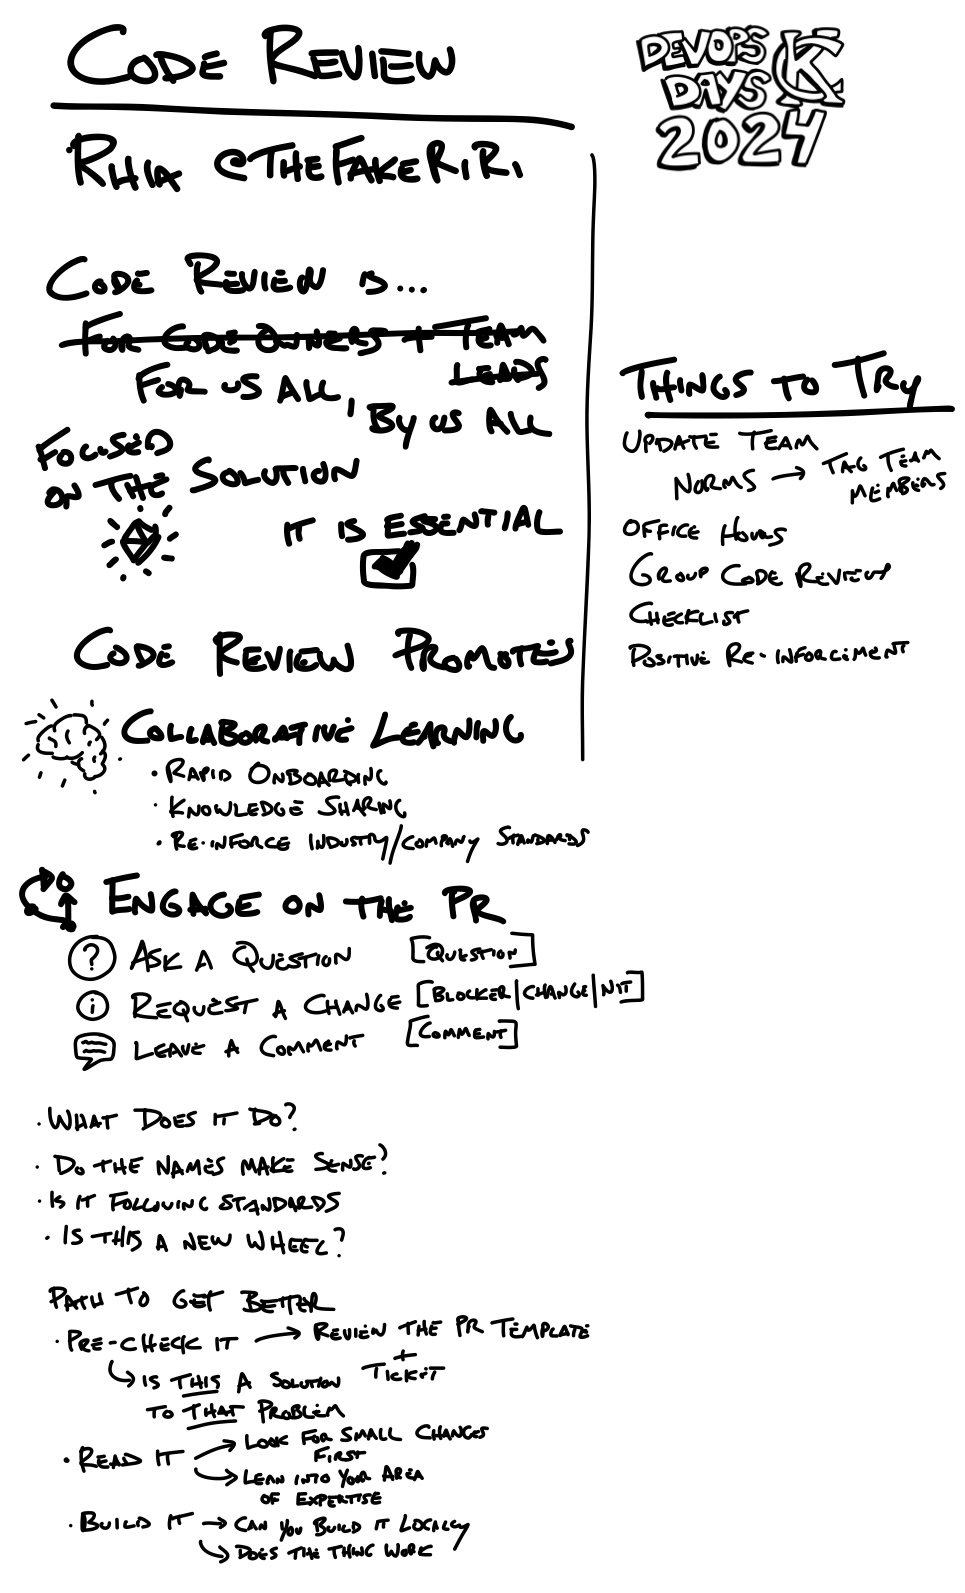 CODE REVIEW
RHIA @THEFAKERIRI
CODE REVIEW IS...
FOR CODE OWNERS + TEAM
LEADS
FOR US ALL,
BY US ALL
FOCUSED
ON THE SOLUTION
IT IS ESSENTIAL
CODE REVIEW PROMOTES
COLLABORATIVE LEARNING
• RAPID ONBOARDING
• KNOWLEDGE SHARING
• RE-INFORCE INDUSTRY/COMPANY STANDARDS
ENGAGE ON THE PR
? ASK A QUESTION [QUESTION]
i REQUEST A CHANGE [BLOCKER|CHANGE|NIT]
LEAVE A COMMENT [COMMENT]
• WHAT DOES IT DO?
• DO THE NAMES MAKE SENSE?
• IS IT FOLLOWING STANDARDS
• IS THIS A NEW WHEEL?
PATH TO GET BETTER
• PRE-CHECK IT → REVIEW THE PR TEMPLATE
+
TICKET
↳ IS THIS A SOLUTION
TO THAT PROBLEM
• READ IT → LOOK FOR SMALL CHANGES
FIRST
↳ LEAN INTO YOUR AREA
OF EXPERTISE
• BUILD IT → CAN YOU BUILD IT LOCALLY
↳ DOES THE THING WORK
DEVOPS
DAYS
KC
2024
THINGS TO TRY
UPDATE TEAM
NORMS → TAG TEAM
MEMBERS
OFFICE HOURS
GROUP CODE REVIEWS
CHECKLIST
POSITIVE RE-INFORCEMENT